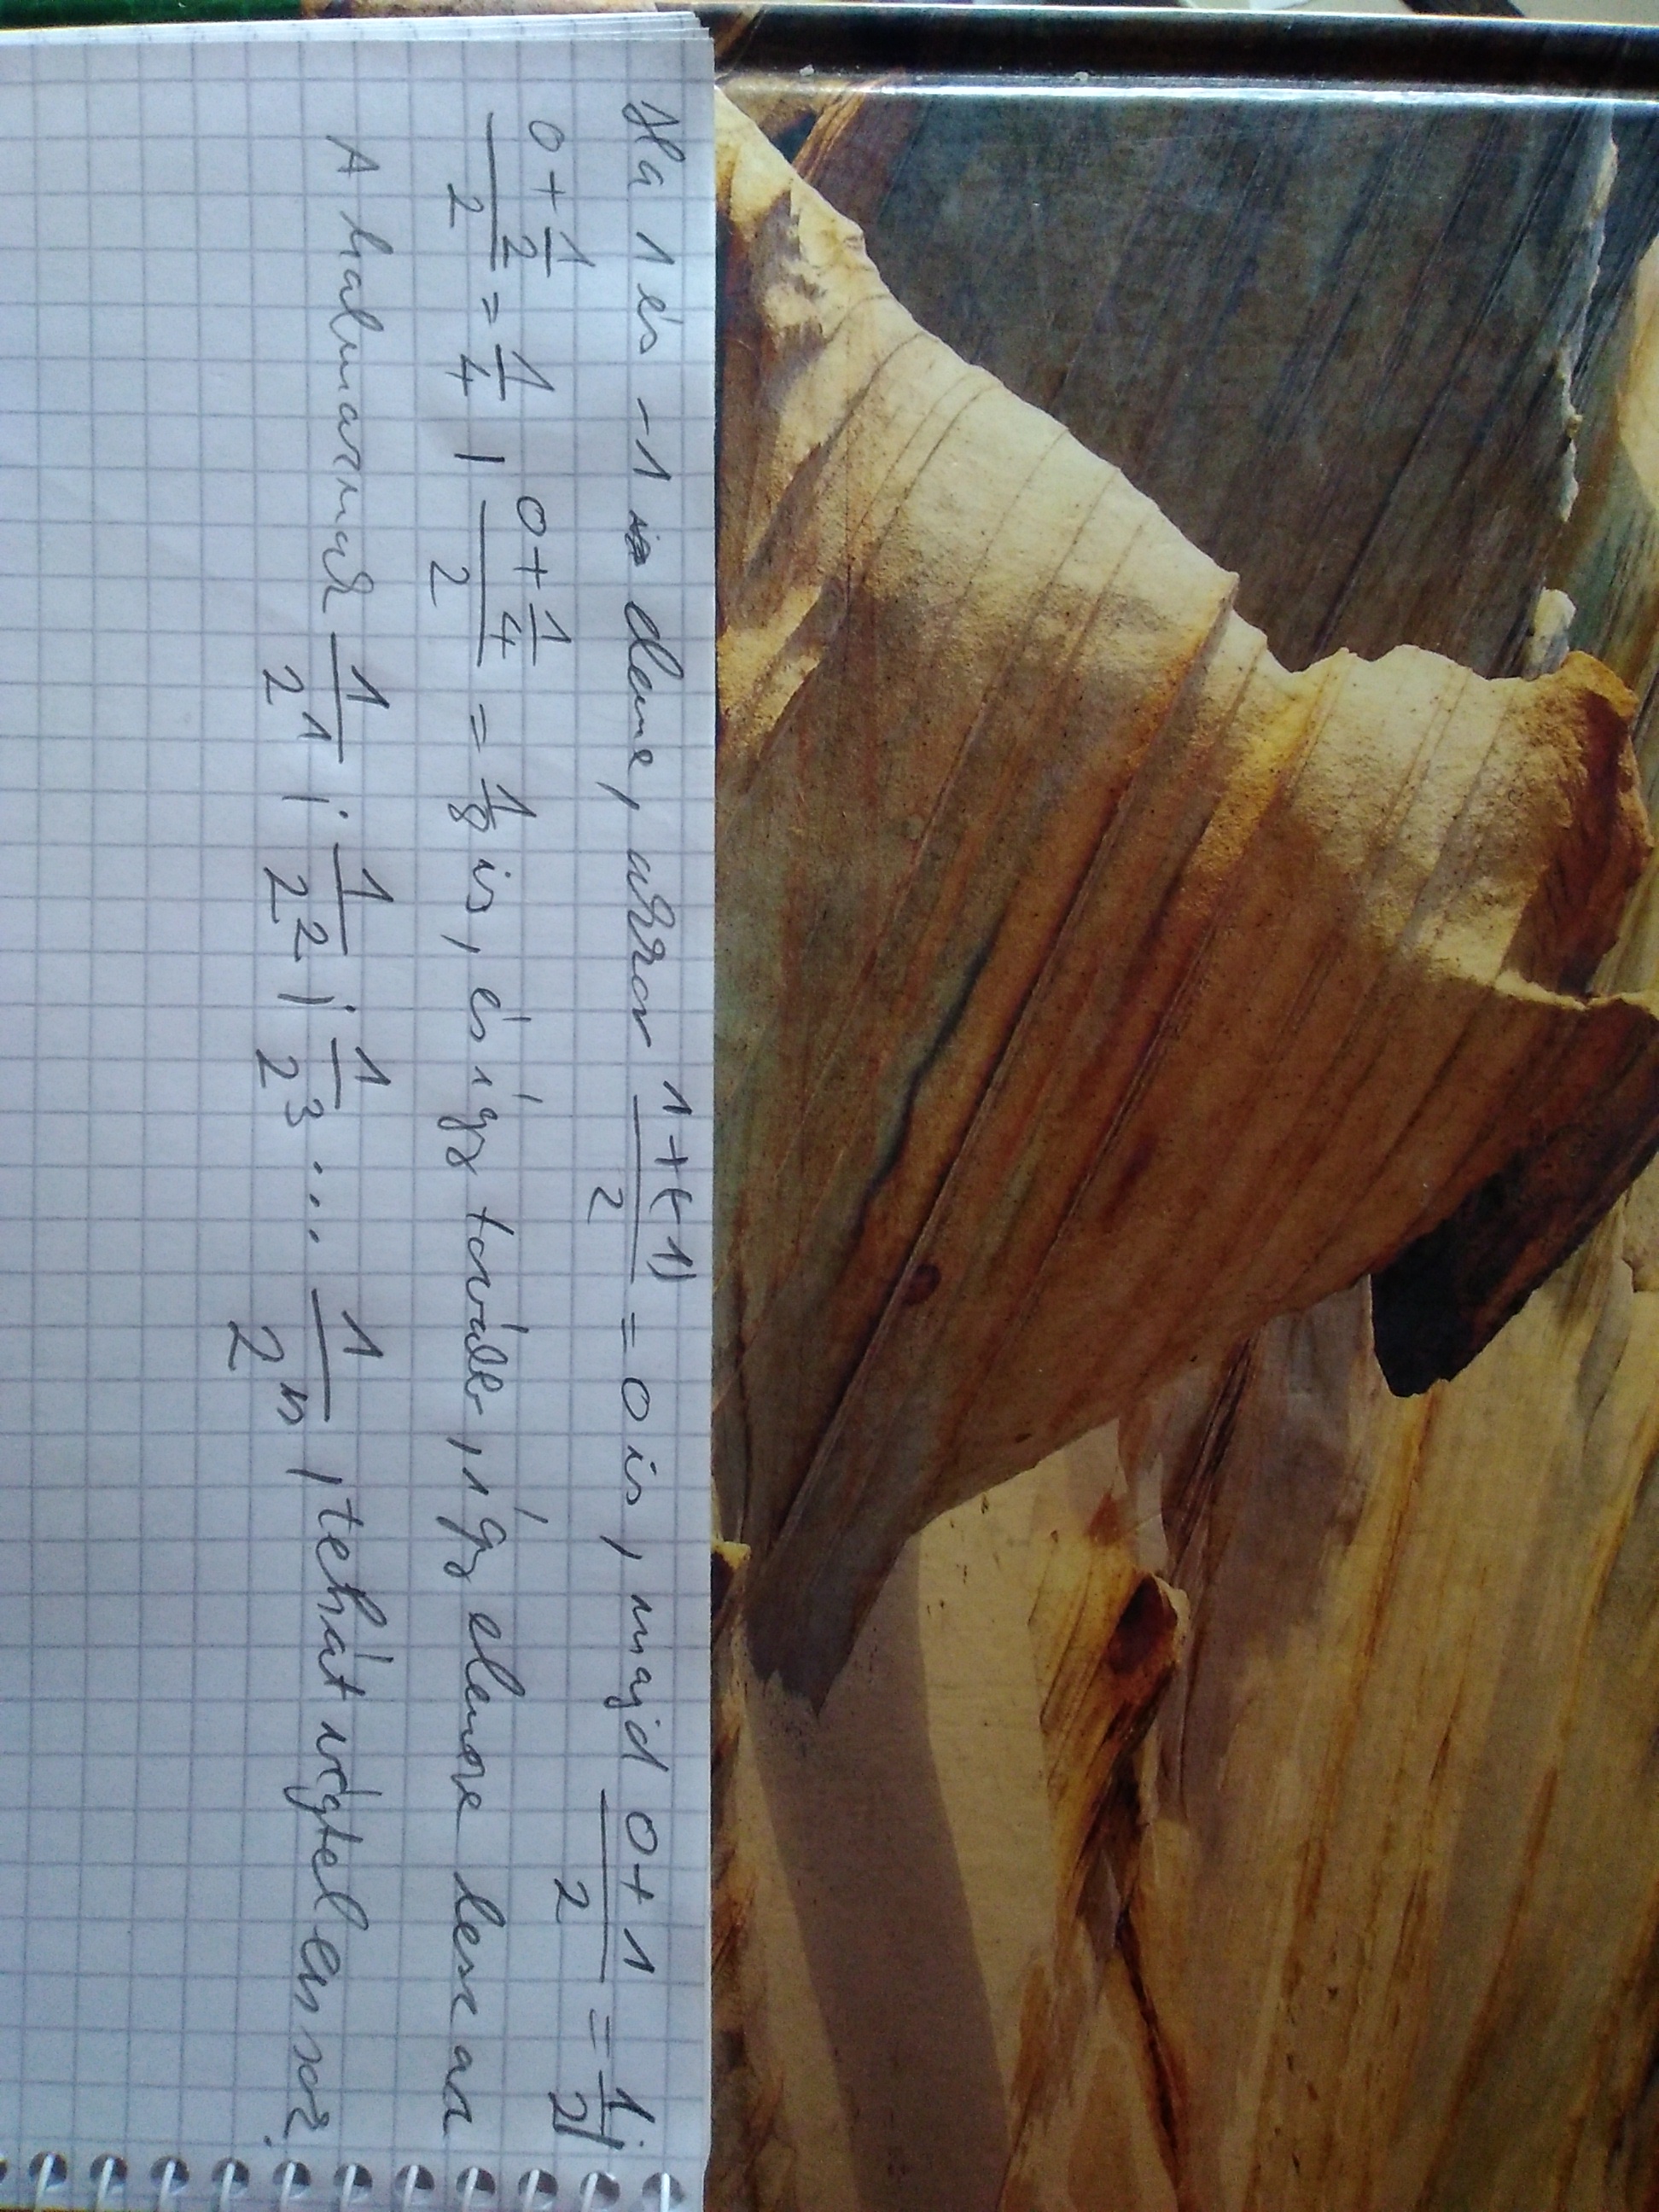 Ha 1 és -1 is eleme, akkor (1+(-1))/2 = 0 is, majd (0+1)/2 = 1/2;
(0+1/2)/2 = 1/4, (0+1/4)/2 = 1/8 is, és így tovább, így eleme lesz a
A halmaznak 1/2^1; 1/2^2; 1/2^3 ... 1/2^n, tehát végtelen sok.